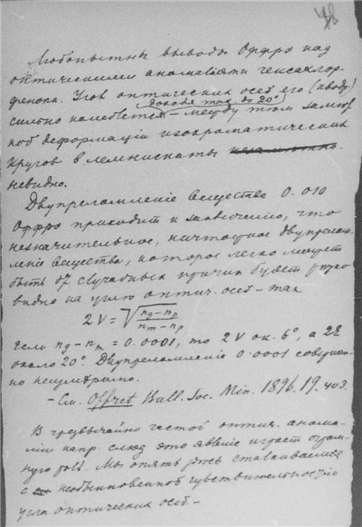 Любопытны выводы Оффрэ над
оптическими аномалиями гексахлор
фенола. Угол оптических осей его (
доходя до 20°
сильно колеблется – между тем
деформаций изохроматических
кругов в лемнискаты
невидно.
Двупреломление вещества 0.010
Оффрэ приходит к заключению, что
незначительное, ничтожное двупрелом
ление вещества, которое легко может
быть от случайных причин будет
видно на угле оптич. осей – так
2V = √ ng–np / nm–np
если ng–nm = 0.0001, то 2V ок. 6°, а 2E
около 20°. Двупреломление 0.0001 соверше
но неизмеримо.
– См. Offret Bull. Soc. Min. 1896. 19. 403.
В чрезвычайно частой оптич. анома
лии напр. слюд это явление играет огром
ную роль. Мы опять здесь сталкиваемся
с необыкновенной чувствительностью
угла оптических осей –